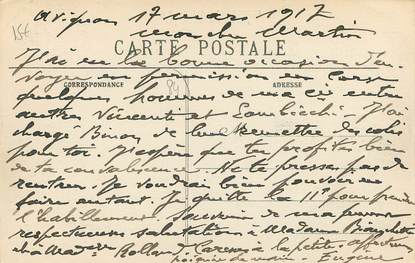 Avignon 17 mars 1917
Mon cher Martin
CARTE POSTALE
CORRESPONDANCE
ADRESSE
J'ai eu la bonne occasion d'en
voyer en permission en Corse
quelques hommes de ma Cie entre
autres Vincent et J'ai
chargé de leur remettre des colis
pour toi. J'espère que tu profites bien
de ta convalescence. Ne te presse pas de
rentrer. Je voudrais bien pouvoir en
faire autant. Je quitte la 11e pour prendre
l'habillement. Souvenir de ma part
respectueuses salutations à Madame
et à Mad Rolland. Caresses à la petite. Affectueuse
poignée de main. Eugène